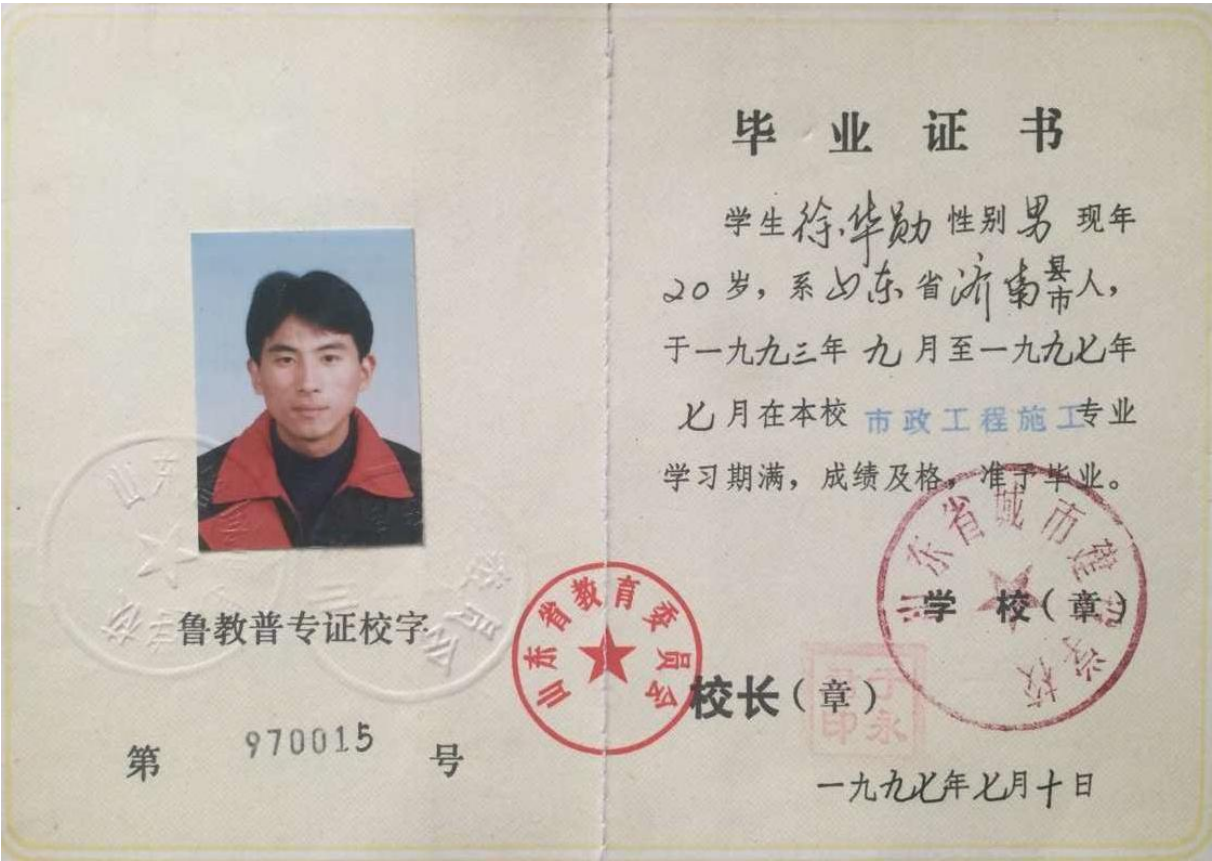 鲁教普专证校字
第 970015 号
毕业证书
学生徐华勋性别男现年
20岁，系山东省济南县市人，
于一九九三年九月至一九九七年
七月在本校市政工程施工专业
学习期满，成绩及格，准予毕业。
山东省城市建设学校
学校（章）
山东省教育委员会
校长（章）
一九九七年七月十日